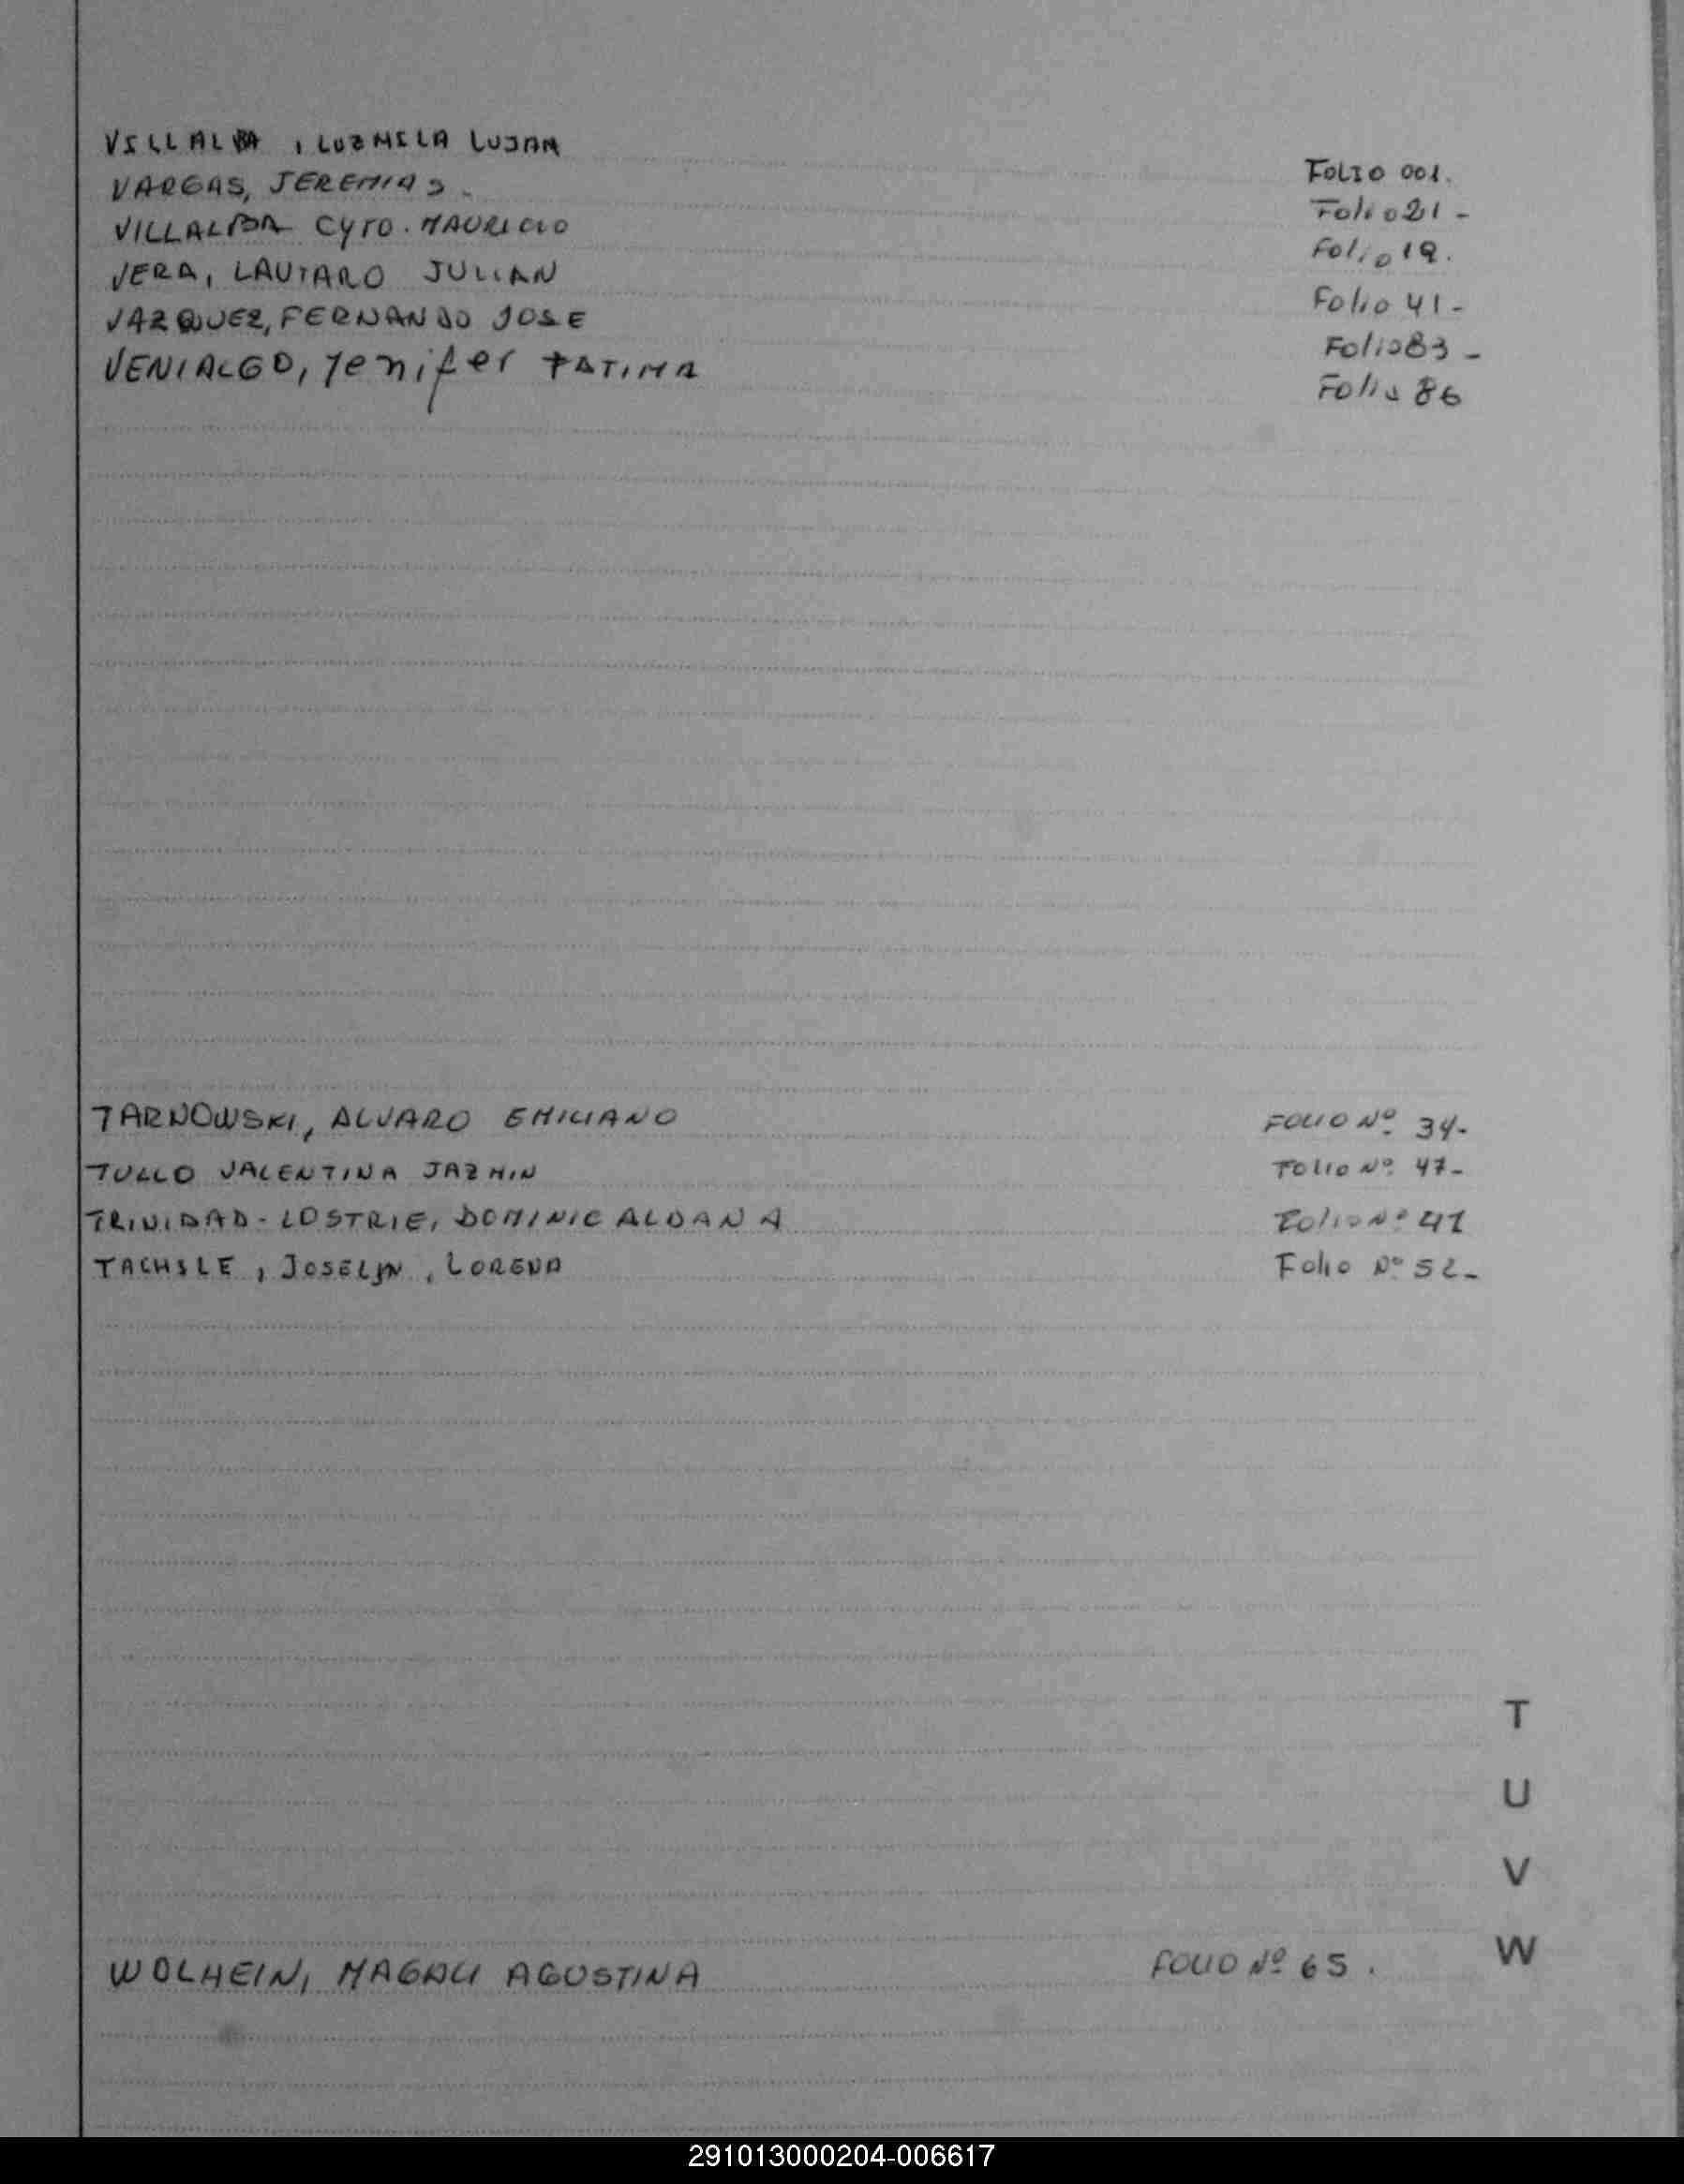 VILLALBA, LUZMILA LUJAN FOLIO 001.
VARGAS, JEREMIAS. Folio 21 -
VILLALBA CYRO. MAURICIO Folio 19.
VERA, LAUTARO JULIAN Folio 41-
VAZQUEZ, FERNANDO JOSE Folio 83 -
VENIALGO, Yenifer FATIMA Folio 86
TARNOWSKI, ALVARO EMILIANO FOLIO Nº 34-
TULLO VALENTINA JAZMIN FOLIO Nº 47-
TRINIDAD-LOSTRIE, DOMINIC ALDANA Folio Nº 41
TACHSLE, JOSELYN, LORENA Folio Nº 52-
T
U
V
W
WOLHEIN, MAGALI AGUSTINA FOLIO Nº 65.
291013000204-006617